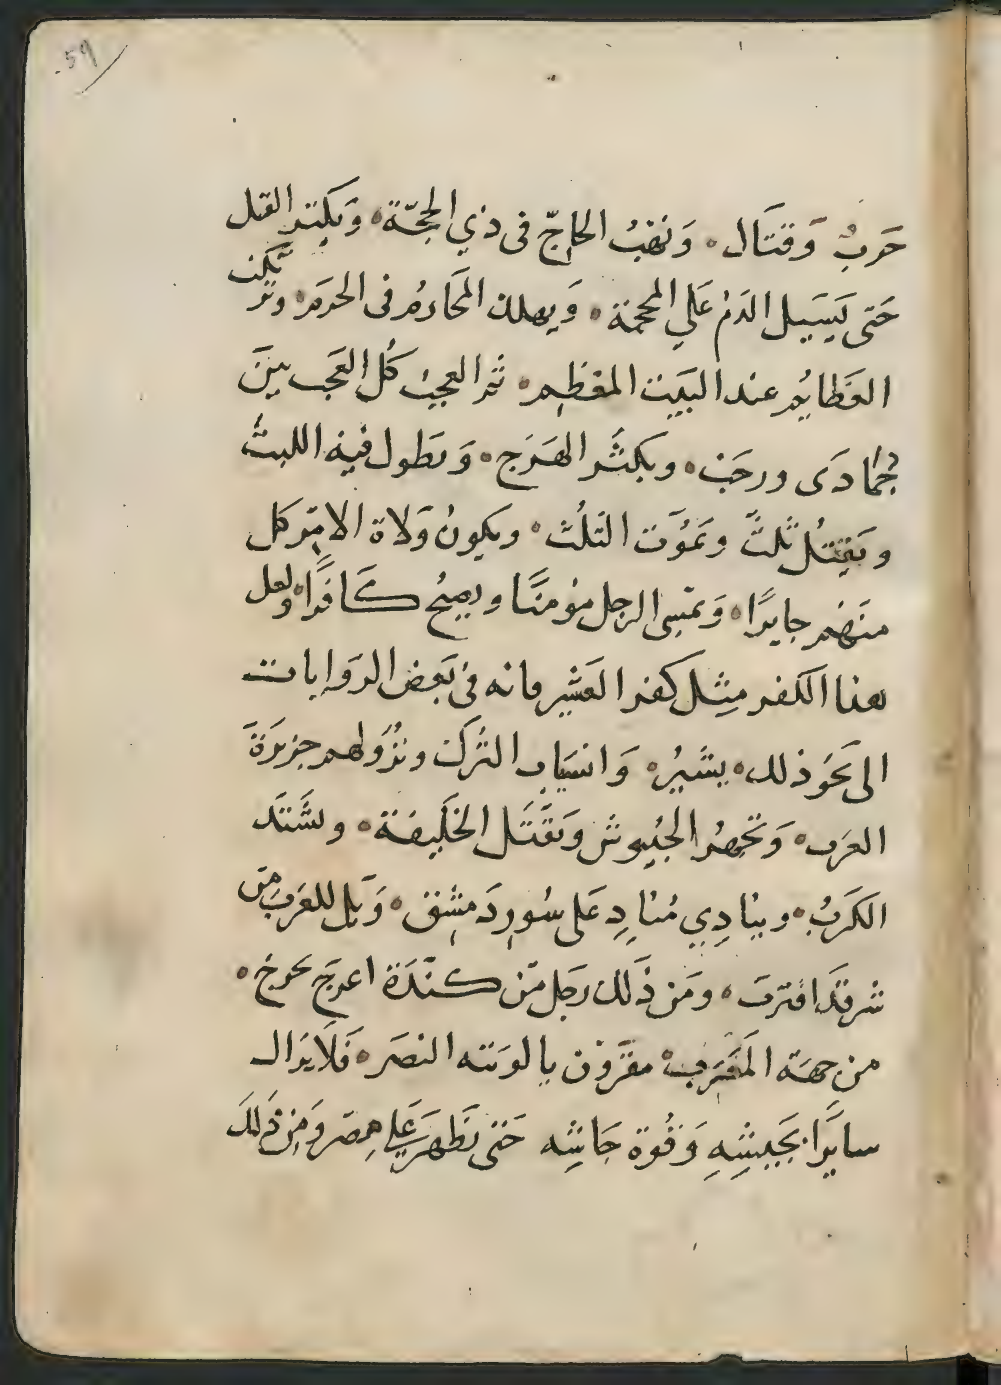 59
حَربٌ وَقتَال ۰ وَنهَبُ الحَاجّ فى ذي الحجّة ۰ وَيكثر القتل
حَتى يَسَيل الدَمُ عَلي المحجَة ۰ وَيهلك المحَارمُ فى الحرَم ۰ وترتكب
العَظايُم عند البَيت المعَظم ۰ ثم العجبُ كُل العَجَب بينَ
جُمَادَى ورجَبْ ۰ ويكثَر الهَرَج ۰ وَيطول فيه اللبثُ
ويَقتلُ ثلثَ ويَموُت الثلُث ۰ ويكونُ وَلاة الامَر كل
منهَم جايرًا ۰ وَيمسى الرجل مؤمنًا ويصبحُ كَافرًا ۰ ولعل
هذا الكفر مثِل كفر العَشير فانه فى بَعض الروَايات
الى نحَو ذلك ۰ يشَيُر ۰ وَانسَياب التُرك ونزُولهم جزيرَة
العرَب ۰ وَتجهزُ الجُيوش وَتقَتَل الخَليفة ۰ وتشَتَد
الكَربُ ۰ وينادِي مُنادِ عَلى سُور دَمِشق ۰ وَيل للعَرب مَن
شر قَد اقترَبَ ۰ ومَن ذَلك رَجل مَن كنْدَة اعرَج يخرج ۰
من جِهَة المَغرِب ۰ مقَرُون بالويته النصَر ۰ فَلاَ يَزال
سايرًا بجَيشِهِ وَقوُة جَاشِه حَتى يَظهَرَ عَلي مِصر وَمِن ذَلكَ